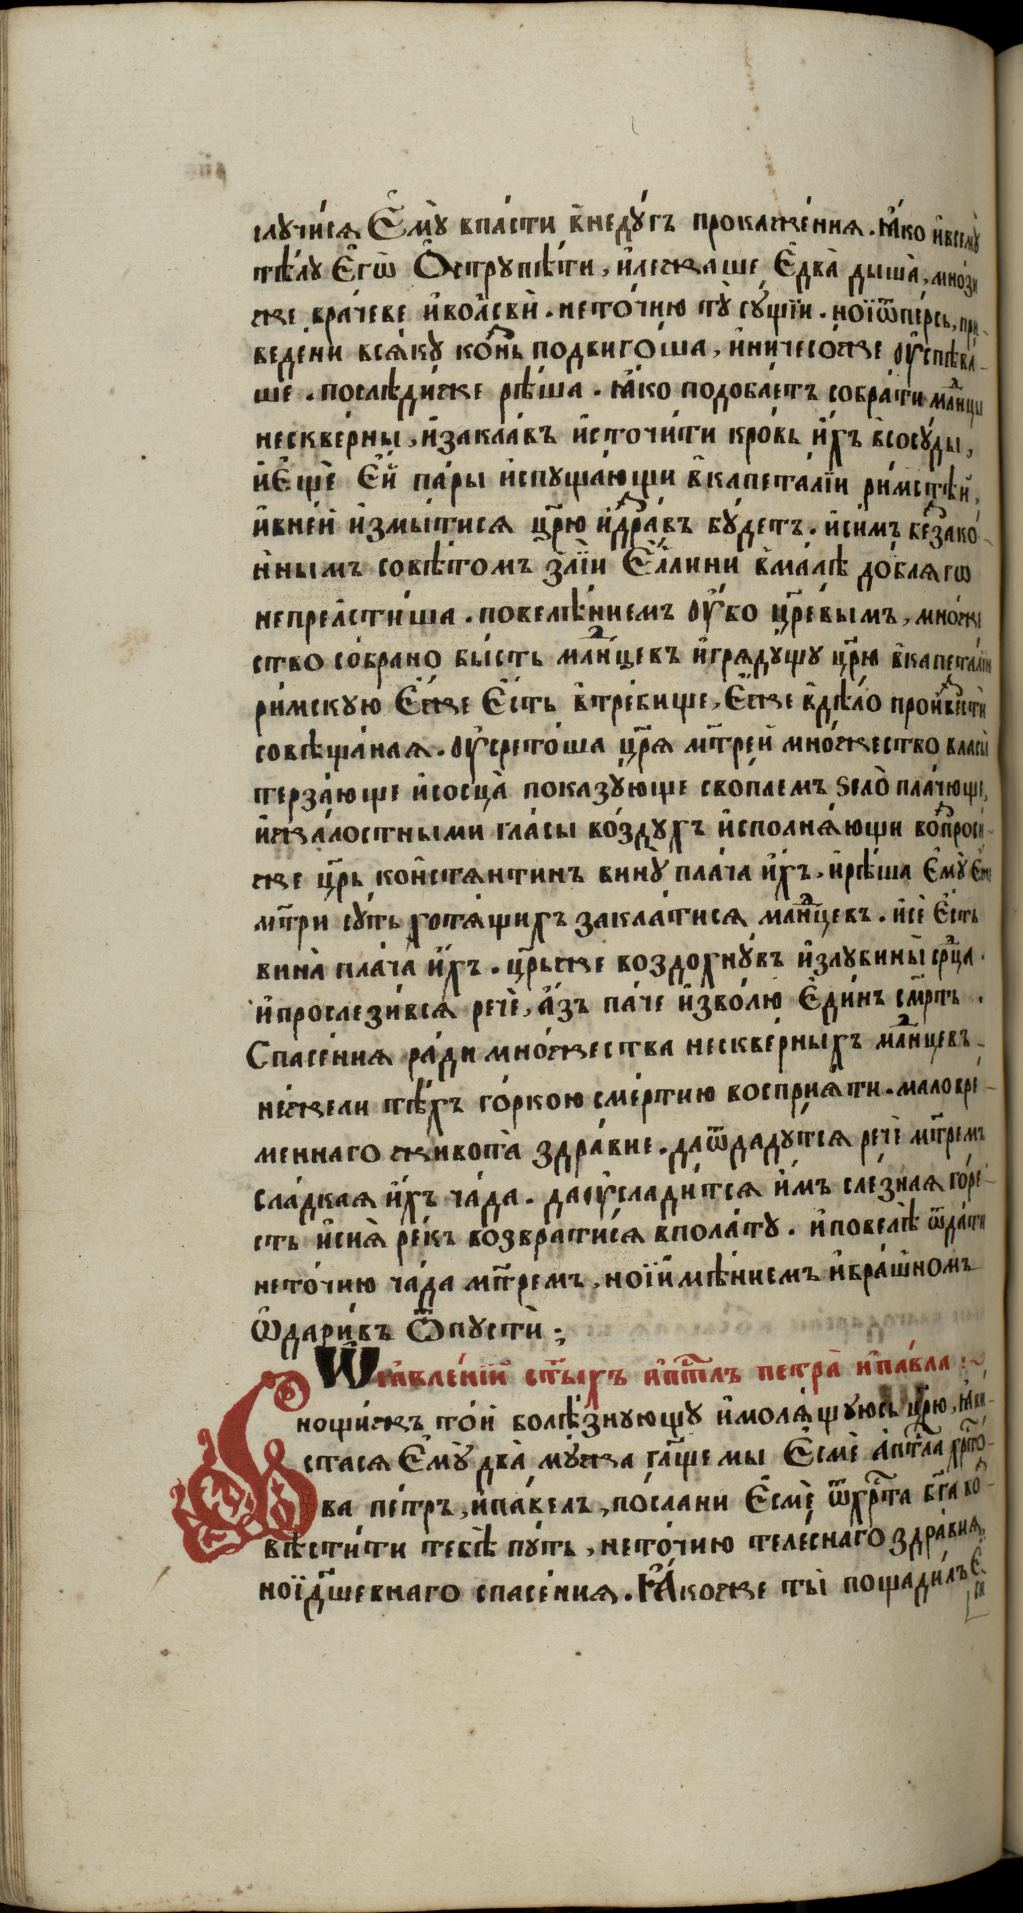 случи́сѧ Є҆мꙋ̀ впа́сти в̾недꙋ́гъ прокаже́нїѧ. ꙗ҆́ко и҆всемꙋ̀
тѣ́лꙋ Є҆гѡ̀ Ѻ҆стрꙋпѣ́ти, и҆лежаше Є҆два̀ дыша̀, мно́зи
же вра́чеве и҆во́лсви. нето́чїю тꙋ̀ сꙋ́щїи. ноїѿпе́рсъ, при-
веде́ни всѧ́кꙋ ко́знь подвиго́ша, и҆ничесо́же оу҆спѣва́-
ше. послѣди́же рѣ́ша. ꙗ҆́ко подоба́етъ собра́ти млⷣнцы
нескве́рны, и҆закла́въ и҆сточи́ти кро́вь и҆́хъ в̾сосꙋ́ды,
и҆Є҆щѐ Є҆́й па́ры и҆спꙋща́ющи в̾капета́лїи ри́мстѣй,
и҆вне́й и҆змы́тисѧ цр҃ю и҆здра́въ бꙋ́детъ. и҆симъ беззако́-
ннымъ совѣ́томъ зл́їи Є҆́ллини в̾ма́лѣ до́блѧгѡ
непрельсти́ша. повелѣ́нїемъ оу҆́бо цр҃евымъ, мно́же
ство со́брано бы́сть млⷣнцевъ и҆грѧдꙋ́щꙋ цр҃ю в̾капетолїю
ри́мскꙋю Є҆́же Є҆́сть в̾тре́бище, Є҆́же в̾дѣ́ло произвести́
совѣща́наѧ. оу҆срето́ша цр҃ѧ мт҃рей мно́жество власы̀
терза́юще и҆сосца̀ показꙋ́юще сво́племъ ѕело̀ пла́чющи,
и҆жа́лостными гла́сы во́здꙋхъ и҆сполнѧ́ющи вопроси́-
же цр҃ь ко́нстѧнтинъ винꙋ̀ пла́ча и҆́хъ. и҆рѣ́ша Є҆мꙋ̀ Є҆́же
мт҃ри сꙋ́ть хотѧ́щихъ закла́тисѧ млⷣнцевъ. и҆сѐ Є҆́сть
вина̀ пла́ча и҆́хъ. цр҃ьже воздохнꙋ́въ и҆злꙋбины̀ срⷣца.
и҆прослези́всѧ речѐ, а҆́зъ па́че и҆зво́лю Є҆ди́нъ смр҃ть.
Спасе́нїѧ ра́ди мно́жества нескве́рныхъ млⷣнцевъ-
не́жели тѣ́хъ го́ркою сме́ртїю воспрїѧ́ти. маловре́-
меннаго живота̀ здра́вїе. даѿдадꙋ́тсѧ речѐ мт҃ремъ
сла́дкаѧ и҆́хъ ча́да. даоу҆слади́тсѧ и҆́мъ сле́знаѧ го́ре-
сть и҆сїѧ̀ ре́къ возврати́сѧ вполатꙋ. и҆повелѣ̀ ѿда́ти
нето́чїю ча́да мт҃ремъ, ної́мѣнїемъ и҆бра́шномъ
Ѡ҆дари́въ Ѿпꙋстѝ;
Ѡ҆ꙗ҆вле́нїи ст҃ы́хъ а҆пⷭ҇тлъ петра̀ и҆па́вла:~
нощи́жъ то́й болѣ́знꙋющꙋ и҆молѧ́щꙋюсь цр҃ю, ꙗ҆ви́-
стасѧ Є҆мꙋ̀ два̀ мꙋ́жа гл҃ще мы Є҆смѐ а҆пⷭ҇тла хрⷭ҇то-
ва пе́тръ, и҆па́велъ, послани Є҆смѐ ѿхрⷭ҇та бг҃а во-
вѣсти́ти тебѣ̀ пꙋ́ть, нето́чїю теле́снаго здра́вїѧ,
ноїдш҃евнаго спасе́нїѧ. Ꙗ҆́коже ты̀ пощади́лъ Є҆
си